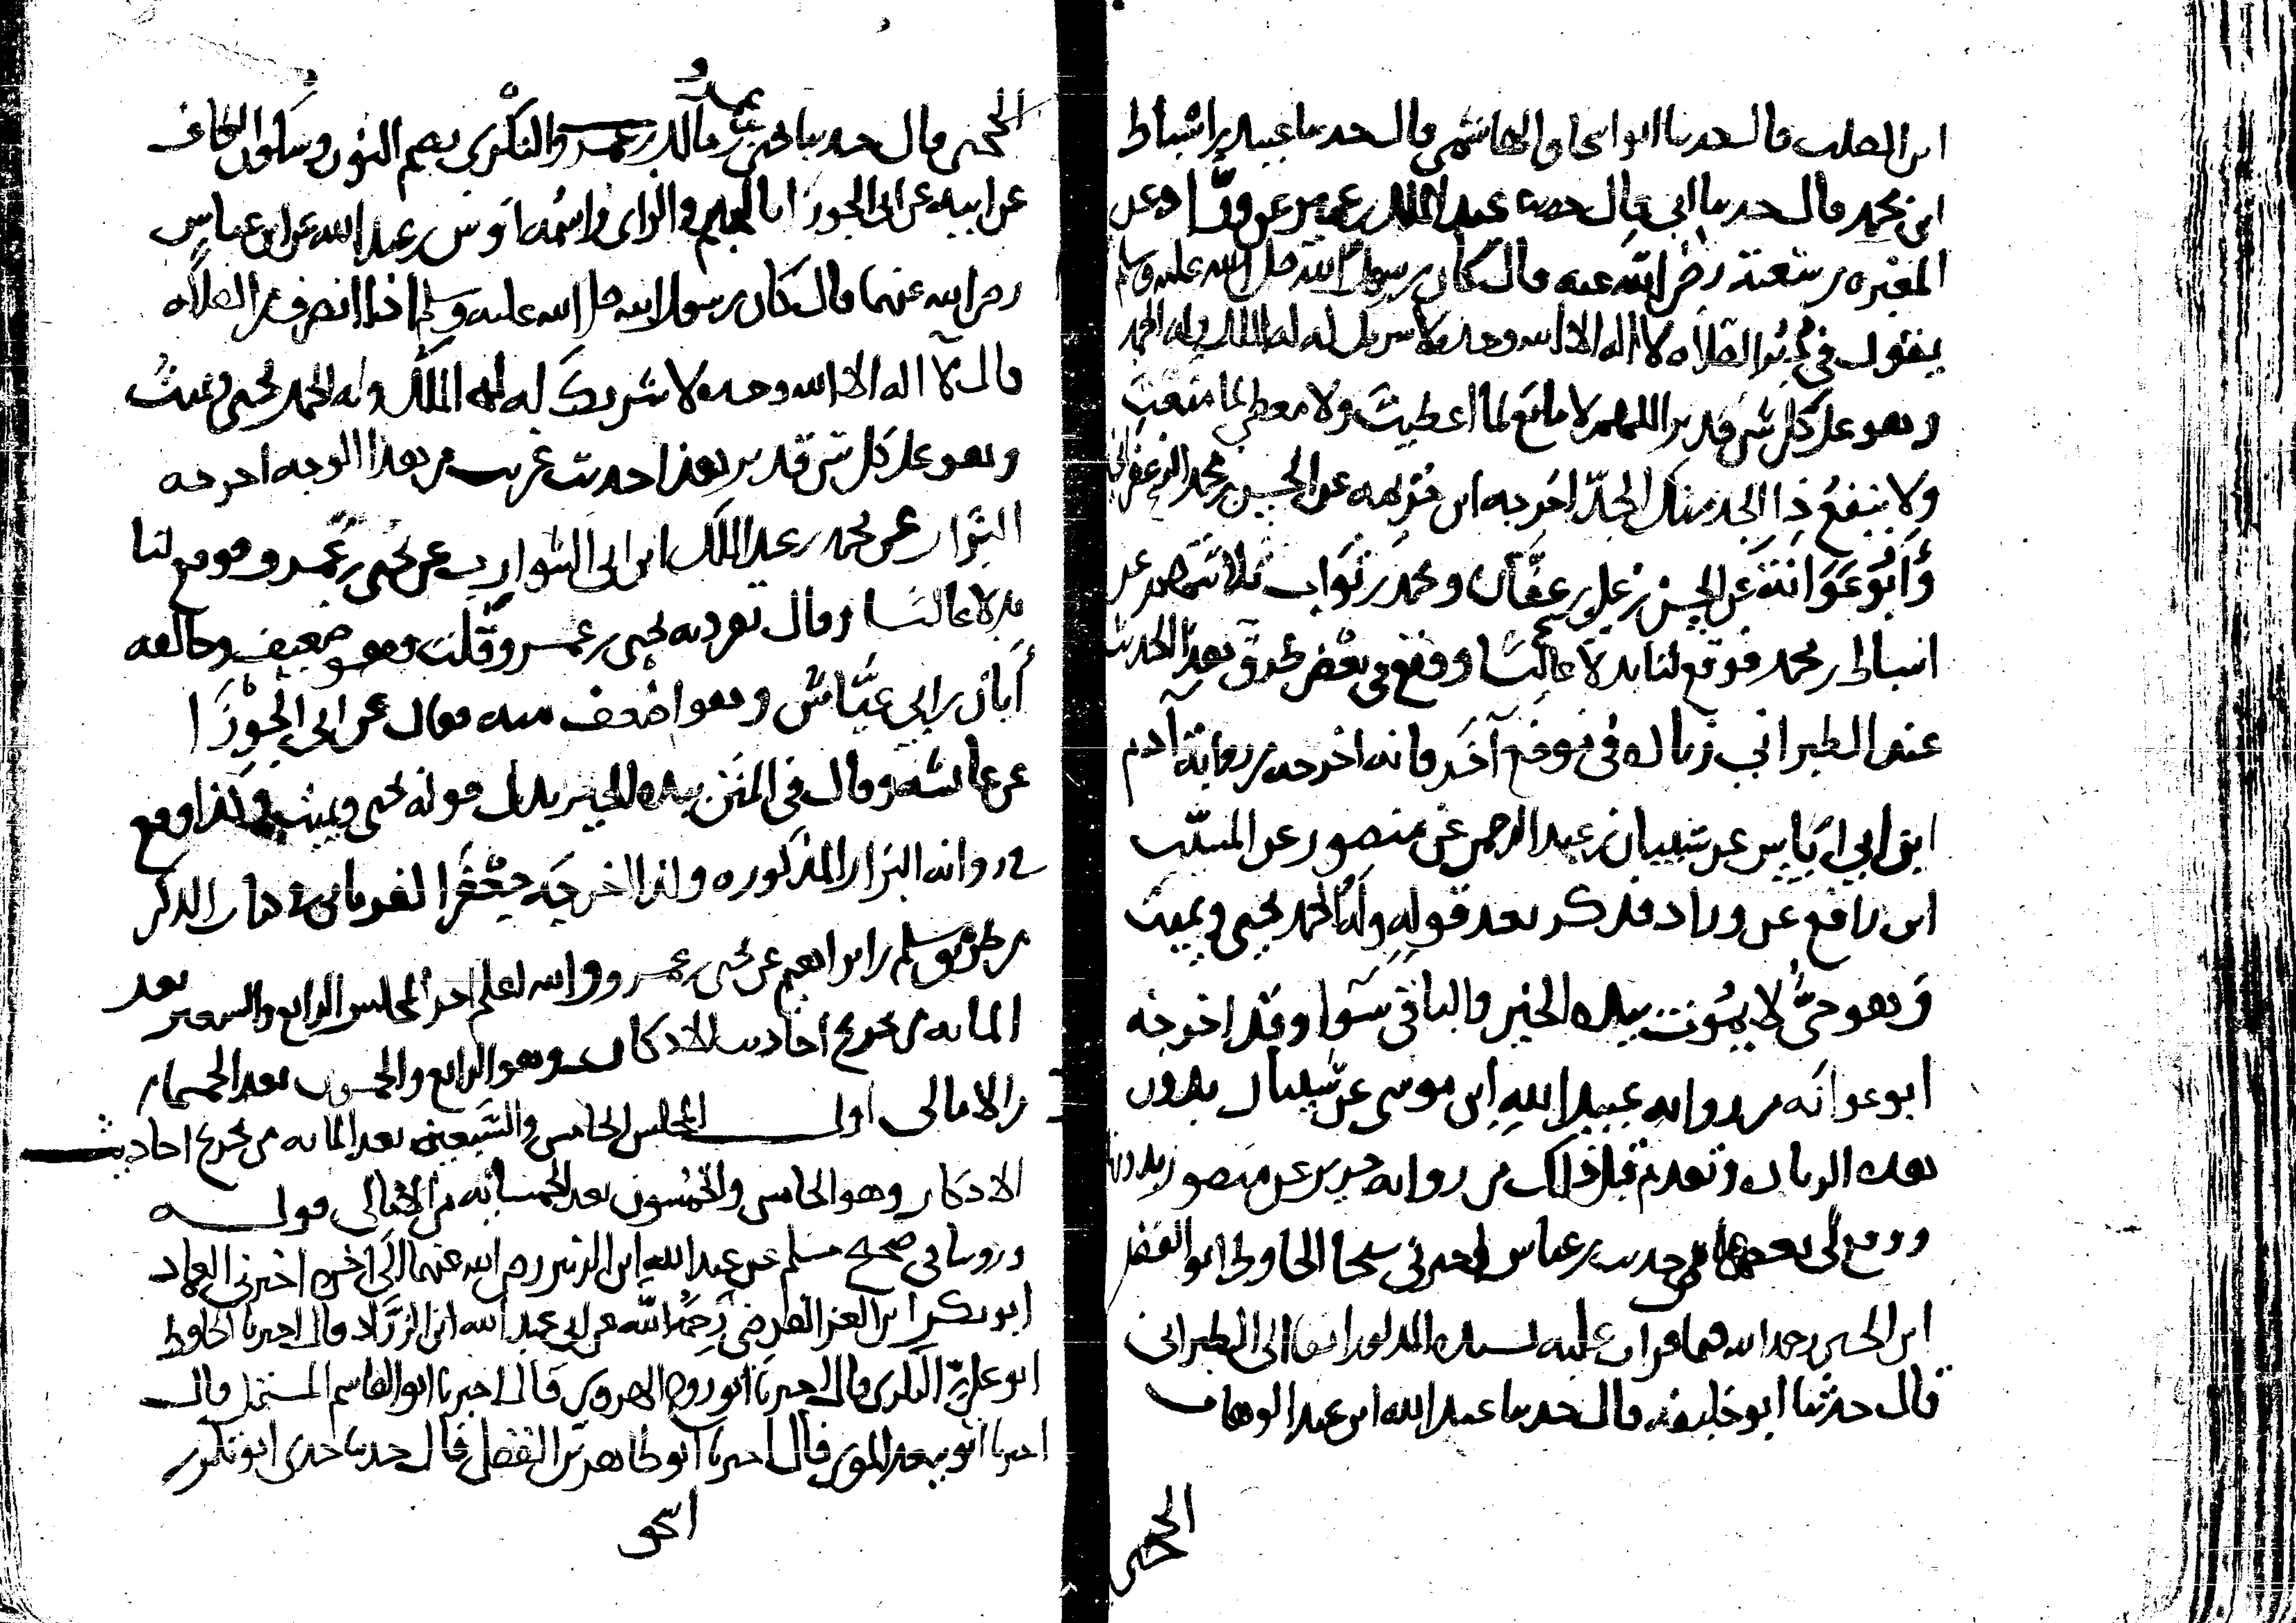 ابن الصلت قال حدثنا ابو اسحاق الهاشمي قال حدثنا عبيد بن اسباط
ابن محمد قال حدثنا ابي قال حدثنا عبد الملك بن عمير عن وراد عن
المغيره بن شعبة رضي الله عنه قال كان رسول الله صلى الله عليه وسلم
يقول في دبر الصلاه لا اله الا الله وحده لا شريك له له الملك وله الحمد
وهو على كل شي قدير اللهم لا مانع لما اعطيت ولا معطي لما منعت
ولا ينفع ذا الجد منك الجد اخرجه ابن خزيمه عن الحسن بن محمد الزعفراني
وأبو عوانة عن الحسن بن علي بن عفان ومحمد بن ثواب ثلاثتهم عن
اسباط بن محمد فوقع لنا بدلا عاليا ووقع في بعض طرق هذا الحديث
عند الطبراني زياده في موضع آخر فانه اخرجه من رواية آدم
ابن ابي اياس عن شيبان بن عبد الرحمن عن منصور عن المسيب
ابن رافع عن وراد فذكر بعد قوله وله الحمد يحيي ويميت
وهو حي لا يموت بيده الخير والباقي سوا وقد اخرجه
ابو عوانه من روايه عبيد الله ابن موسى عن شيبان بدون
هذه الزياده وتقدم قبل ذلك من روايه جرير عن منصور بدونها
ووقع لي بعضها في حديث ابن عباس اخبرني شيخنا الحافظ ابو الفضل
ابن الحسين رحمه الله فيما قرات عليه بسنده المذكور انفا الى الطبراني
قال حدثنا ابو خليفه قال حدثنا عبد الله ابن عبد الوهاب
الحجبي
الحجبي قال حدثنا يحيى بن عمرو بن مالك النكري بضم النون وسكون الكاف
عن ابيه عن ابي الجوزا بالجيم والزاي واسمه اوس بن عبد الله عن ابن عباس
رضي الله عنهما قال كان رسول الله صلى الله عليه وسلم اذا انصرف من الصلاه
قال لا اله الا الله وحده لا شريك له له الملك وله الحمد يحيي ويميت
وهو على كل شي قدير هذا حديث غريب من هذا الوجه اخرجه
البزار عن محمد بن عبد الملك ابن ابي الشوارب عن يحيى بن عمرو فوقع لنا
بدلا عاليا وقال تفرد به يحيى بن عمرو قلت وهو ضعيف وخالفه
أبان بن ابي عياش وهو اضعف منه فقال عن ابي الجوزا
عن عائشه وقال في المتن بيده الخير بدل قوله يحيي ويميت وكذا وقع
في روايه البزار المذكوره وكذا اخرجه جعفر الفريابي في كتاب الذكر
من طريق مسلم بن ابراهيم عن يحيى بن عمرو والله اعلم اخر المجلس الرابع والسبعين بعد
المائه من تخريج احاديث الاذكار وهو الرابع والخمسون بعد الخمسمايه
من الامالي اول المجلس الخامس والسبعين بعد المائه من تخريج احاديث
الاذكار وهو الخامس والخمسون بعد الخمسمائه من الامالي قوله
وروينا في صحيح مسلم عن عبد الله ابن الزبير رضي الله عنهما الى اخره اخبرني العماد
ابو بكر ابن العز الفرضي رحمه الله عن ابي عبد الله ابن الزراد قال اخبرنا الحافظ
ابو علي البكري قال اخبرنا ابو روح الهروي قال اخبرنا ابو القاسم المستملي قال
اخبرنا ابو سعد المقري قال اخبرنا ابو طاهر بن الفضل قال حدثنا جدي ابو بكر
اسحق